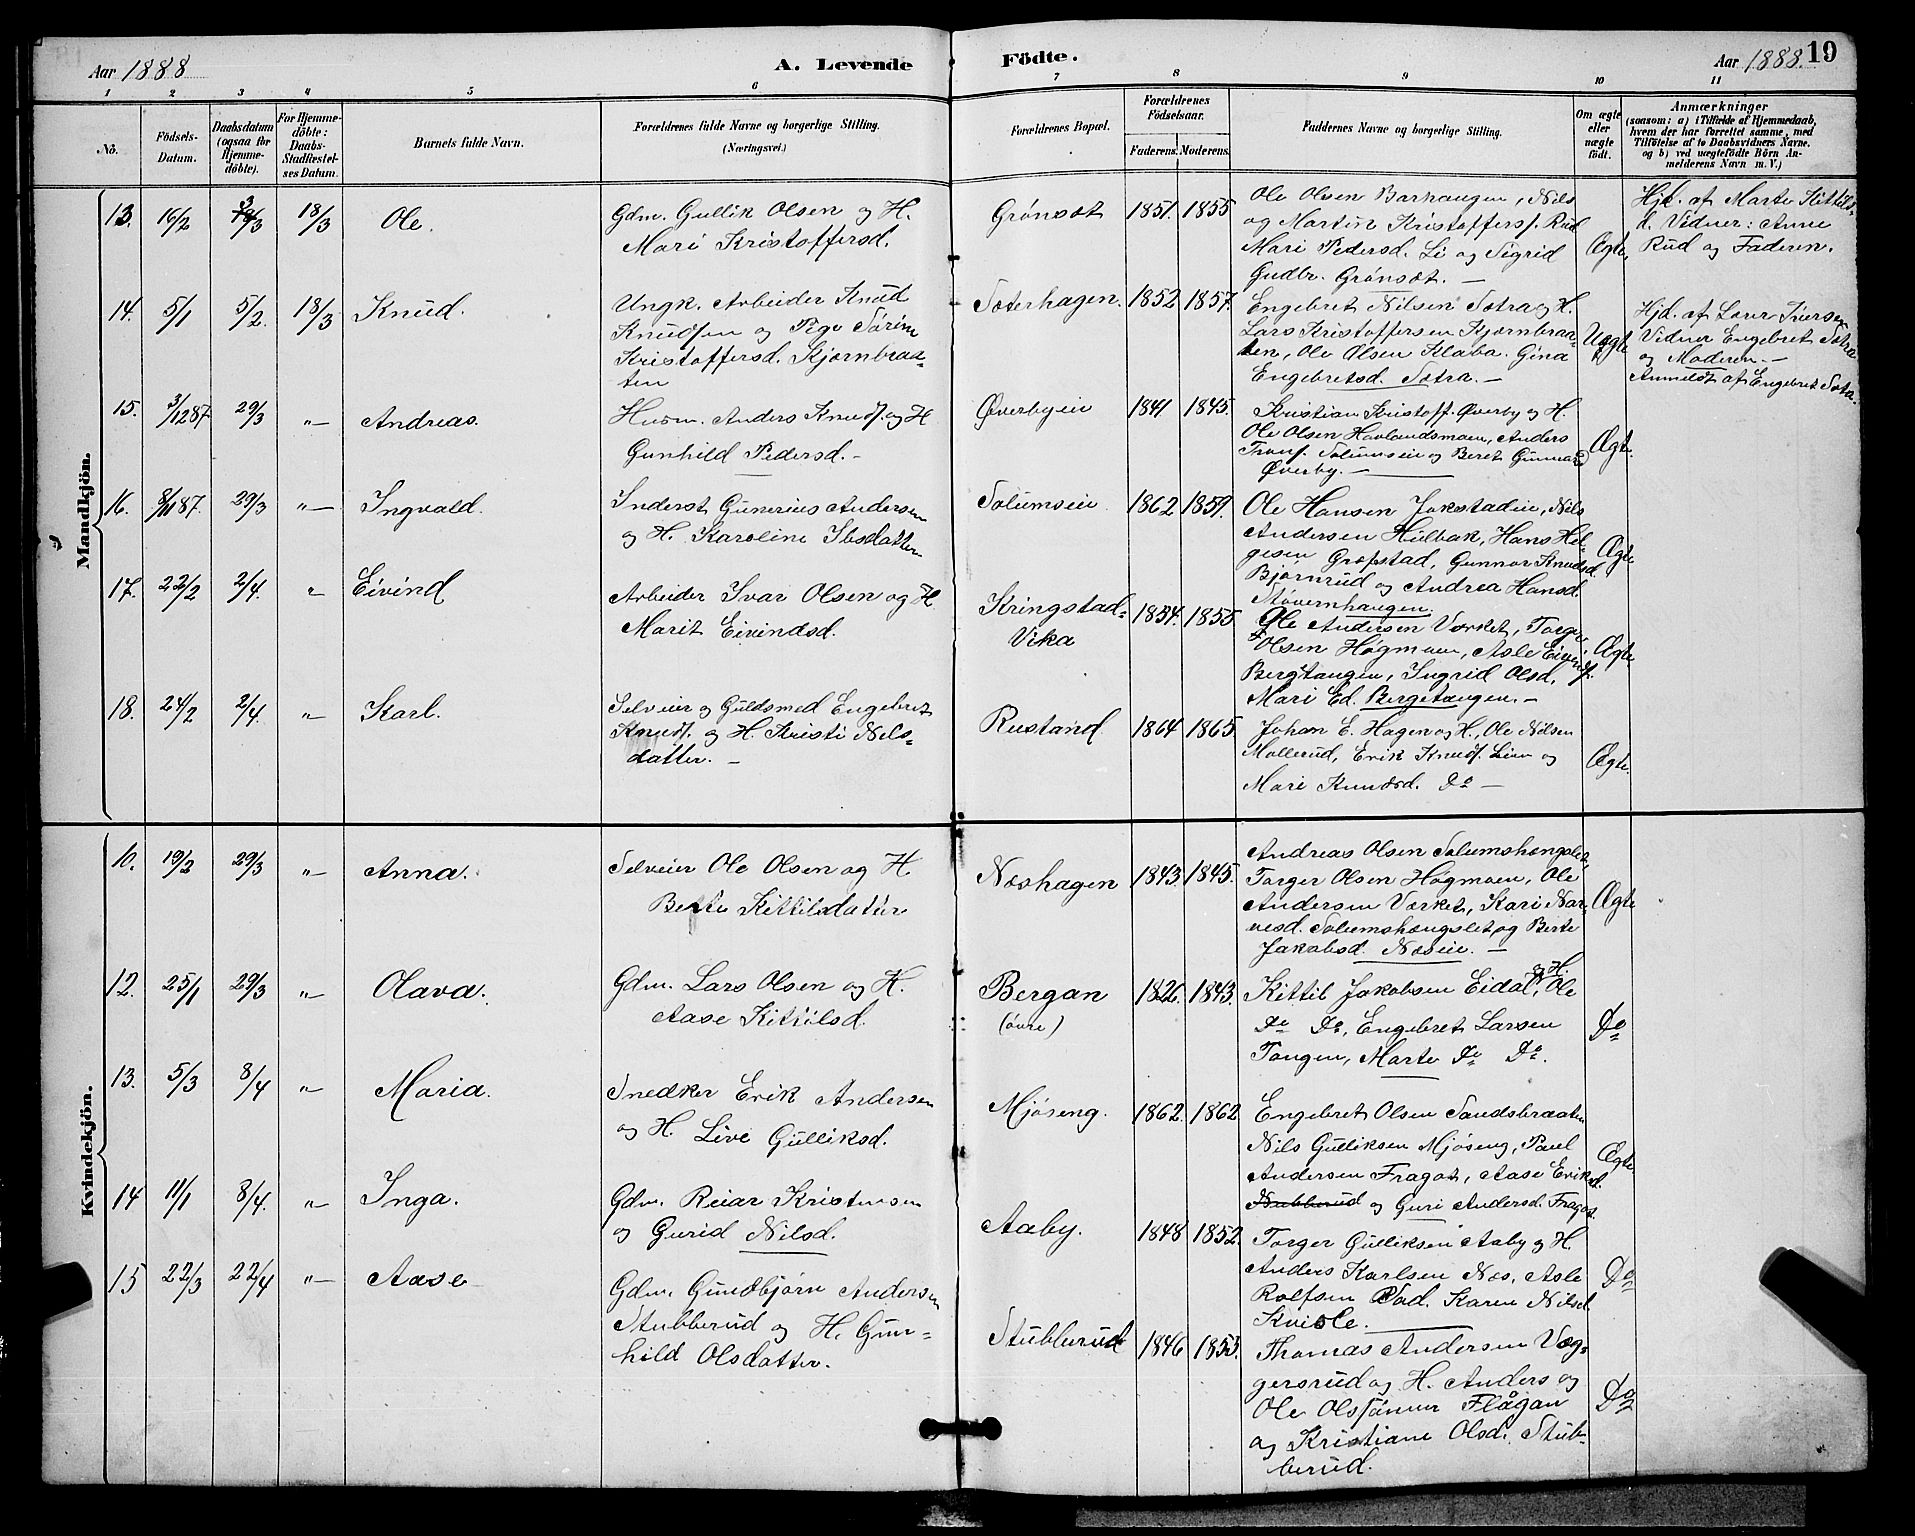 Aar 1888
A. Levende
Födte.
Aar 1888.
19
1 2 3 4 5 6 7 8 9 10 11
Nô.
Födsels-
Datum.
Daabsdatum
(ogsaa for
Hjemme-
döbte).
For Hjemme-
döbte:
Daabs-
Stadfæstel-
ses Datum.
Barnets fulde Navn.
Forældrenes fulde Navne og borgerlige Stilling.
(Næringsvei.)
Forældrenes Bopæl.
Forældrenes
Födselsaar.
Faderens. Moderens.
Faddernes Navne og borgerlige Stilling.
Om ægte
eller
uægte
födt.
Anmærkninger
(saasom: a) i Tilfælde af Hjemmedaab,
hvem der har forrettet samme, med
Tilföielse af to Daabsvidners Navne.
og b) ved uægtefödte Börn An-
melderens Navn m. V.)
Mandkjön.
13. 16/2 18/3 Ole.
Gdm. Gullik Olsen og H.
Mari Kristoffersd.
Grönsöt 1851. 1855
Ole Olsen Barhaugen, Nils
og Martin Kristoffers. Rud
Mari Pedersd. Li og Sigrid
Gudbr. Grönsöt. —
Ægte,
Hjd. af Marte Kittils-
d. Vidner: Anne
Rud og Faderen.
14. 5/1 5/2. 18/3 Knud.
Ungk. Arbeider Knud
Knudsen og Pige Sörine
Kristoffersd. Kjörnbraa-
ten
Sæterhagen. 1852 1857.
Engebret Nilsen Sætra og H.
Lars Kristoffersen Kjærnbraa-
ten, Ole Olsen Klaba. Gina
Engebretsd. Sætra. —
Uægte
Hjd. af Iversen
Vidner Engebret Sætra
og Moderen. —
Anmeldt af Engebret Sætra.
15. 3/1287 29/3 „— Andreas.
Husm. Anders Knuds. og H
Gunhild Pedersd. —
Øverbyeie 1841 1845.
Kristian Kristoff. Øverby og H.
Ole Olsen Havlandsmoen, Anders
Solumseie og Berit Gunnar
Øverby. —
Ægte.
16. 8/1187. 29/3 „— Ingvald.
Inderst Gunerius Andersen
og H. Karoline Ibsdatter
Solumseie 1862 1859.
Ole Hansen Jokstadeie, Nils
Andersen Hilbak, Hans Hel-
gesen Gröfstad, Gunnar Knudsd.
Bjørnrud og Andrea Hansd.
Støvernhaugen.
Ægte
17. 22/2 2/4. „ Eivind
Arbeider Ivar Olsen og H
Marit Eivindsd.
Kringstad-
Vika
1854. 1855.
Ole Andersen Værket, Torger
Olsen Høgmoen, Asle Eivinds.
Bergtangen, Ingrid Olsd,
Mari Ed. Bergetangen. —
Ægte,
18. 24/2 2/4. „ Karl.
Selveier og Guldsmed Engebret
Knuds. og H. Kristi Nils-
datter. —
Rustand 1864 1865.
Johan E. Hagen og H., Ole Nilsen
Mollerud, Erik Knuds. Lien og
Mari Knudsd. Do —
Ægte.
Kvindekjön.
10. 19/2 29/3 „— Anna.
Selveier Ole Olsen og H.
Berte Kittilsdatter
Næshagen 1843. 1845.
Andreas Olsen Solumshængslet,
Torger Olsen Høgmoen, Ole
Andersen Værket, Kari Nar-
vesd. Solumshængslet og Berte
Jakobsd. Næseie. —
Ægte
12. 25/1 29/3 „— Olava.
Gdm. Lars Olsen og H.
Aase Kittilsd.
Bergan
(övre)
1826. 1843.
Kittil Jakobsen Eidal og H., Ole
Do Do, Engebret Larsen
Tangen, Marte Do Do.
Do
13. 5/3 8/4 „— Maria.
Snedker Erik Andersen
og H. Live Gulliksd.
Mjöseng. 1862. 1862
Engebret Olsen Sandsbraaten
Nils Gulliksen Mjöseng, Paul
Andersen Fragot, Aase Eriksd.
Stubberud og Guri Andersd. Fragot.
Ægte
14 11/1 8/4. „— Inga.
Gdm. Reiar Kristensen
og Gurid Nilsd.
Aaby. 1848 1852.
Torger Gulliksen Aaby og H.
Anders Karlsen Næs, Asle
Rolfsen Karen Nilsd.
Kvisle.
Do
15 22/3 22/4 „— Aase
Gdm. Gundbjörn Andersen
Stubberud og H. Gun-
hild Olsdatter.
Stubberud 1846 1853.
Thomas Andersen Væg-
gersrud og H. Anders og
Ole Flågan
og Kristiane Olsd. Stub-
berud.
Do